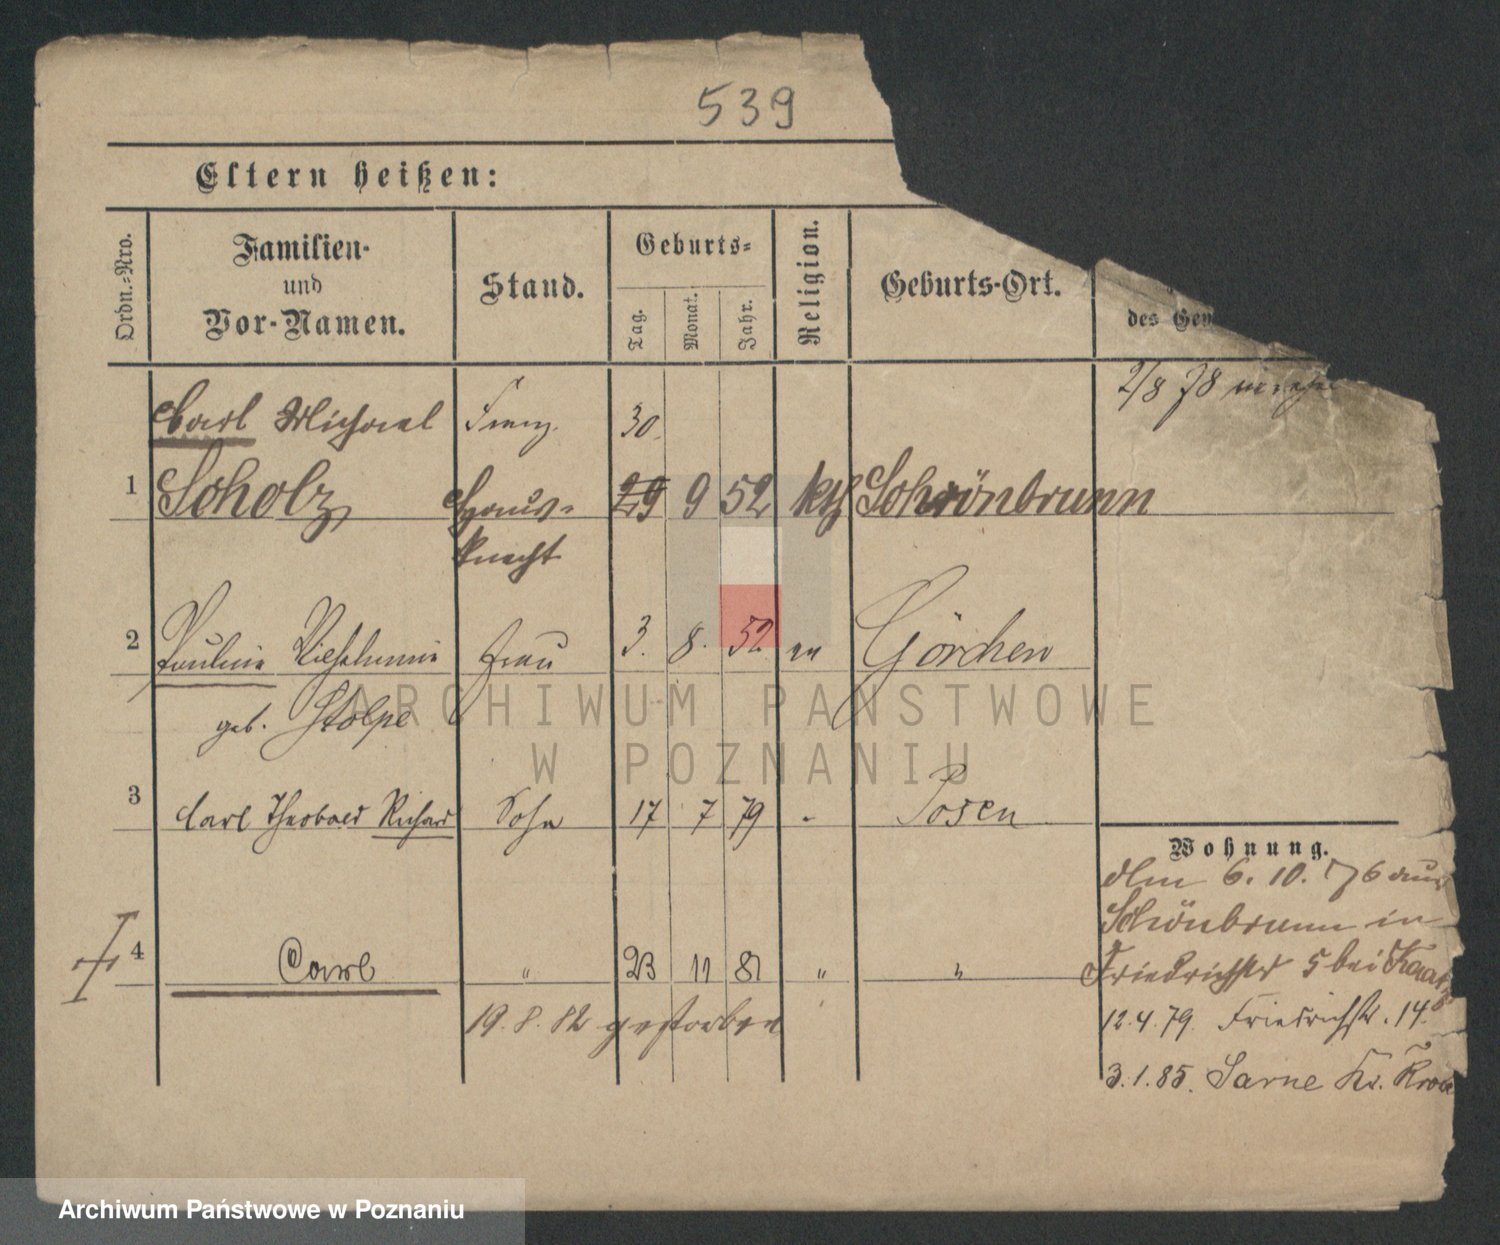 539
Eltern heißen:
Ordn.-Nro.
Familien-
und
Vor-Namen.
Stand.
Geburts-
Tag.
Monat.
Jahr.
Religion.
Geburts-Ort.
des
2/8 78
Carl Michael 30.
1 Scholz Haus- 29 9 52 kth Schönbrunn
knecht
2 Pauline Wilhelmine Frau 3. 8. 52 ev Görchen
geb. Stolpe
3 Carl Theobald Richard Sohn 17 7 79 - Posen
4 Carl " 23 11 81 " "
19.8.82 gestorben
Wohnung.
dem 6. 10. 76 aus
Schönbrunn in
Friedrichstr 5 bei
12.4.79. Friedrichstr. 14.
3.1.85. Sarne Kr.
ARCHIWUM PAŃSTWOWE
W POZNANIU
Archiwum Państwowe w Poznaniu